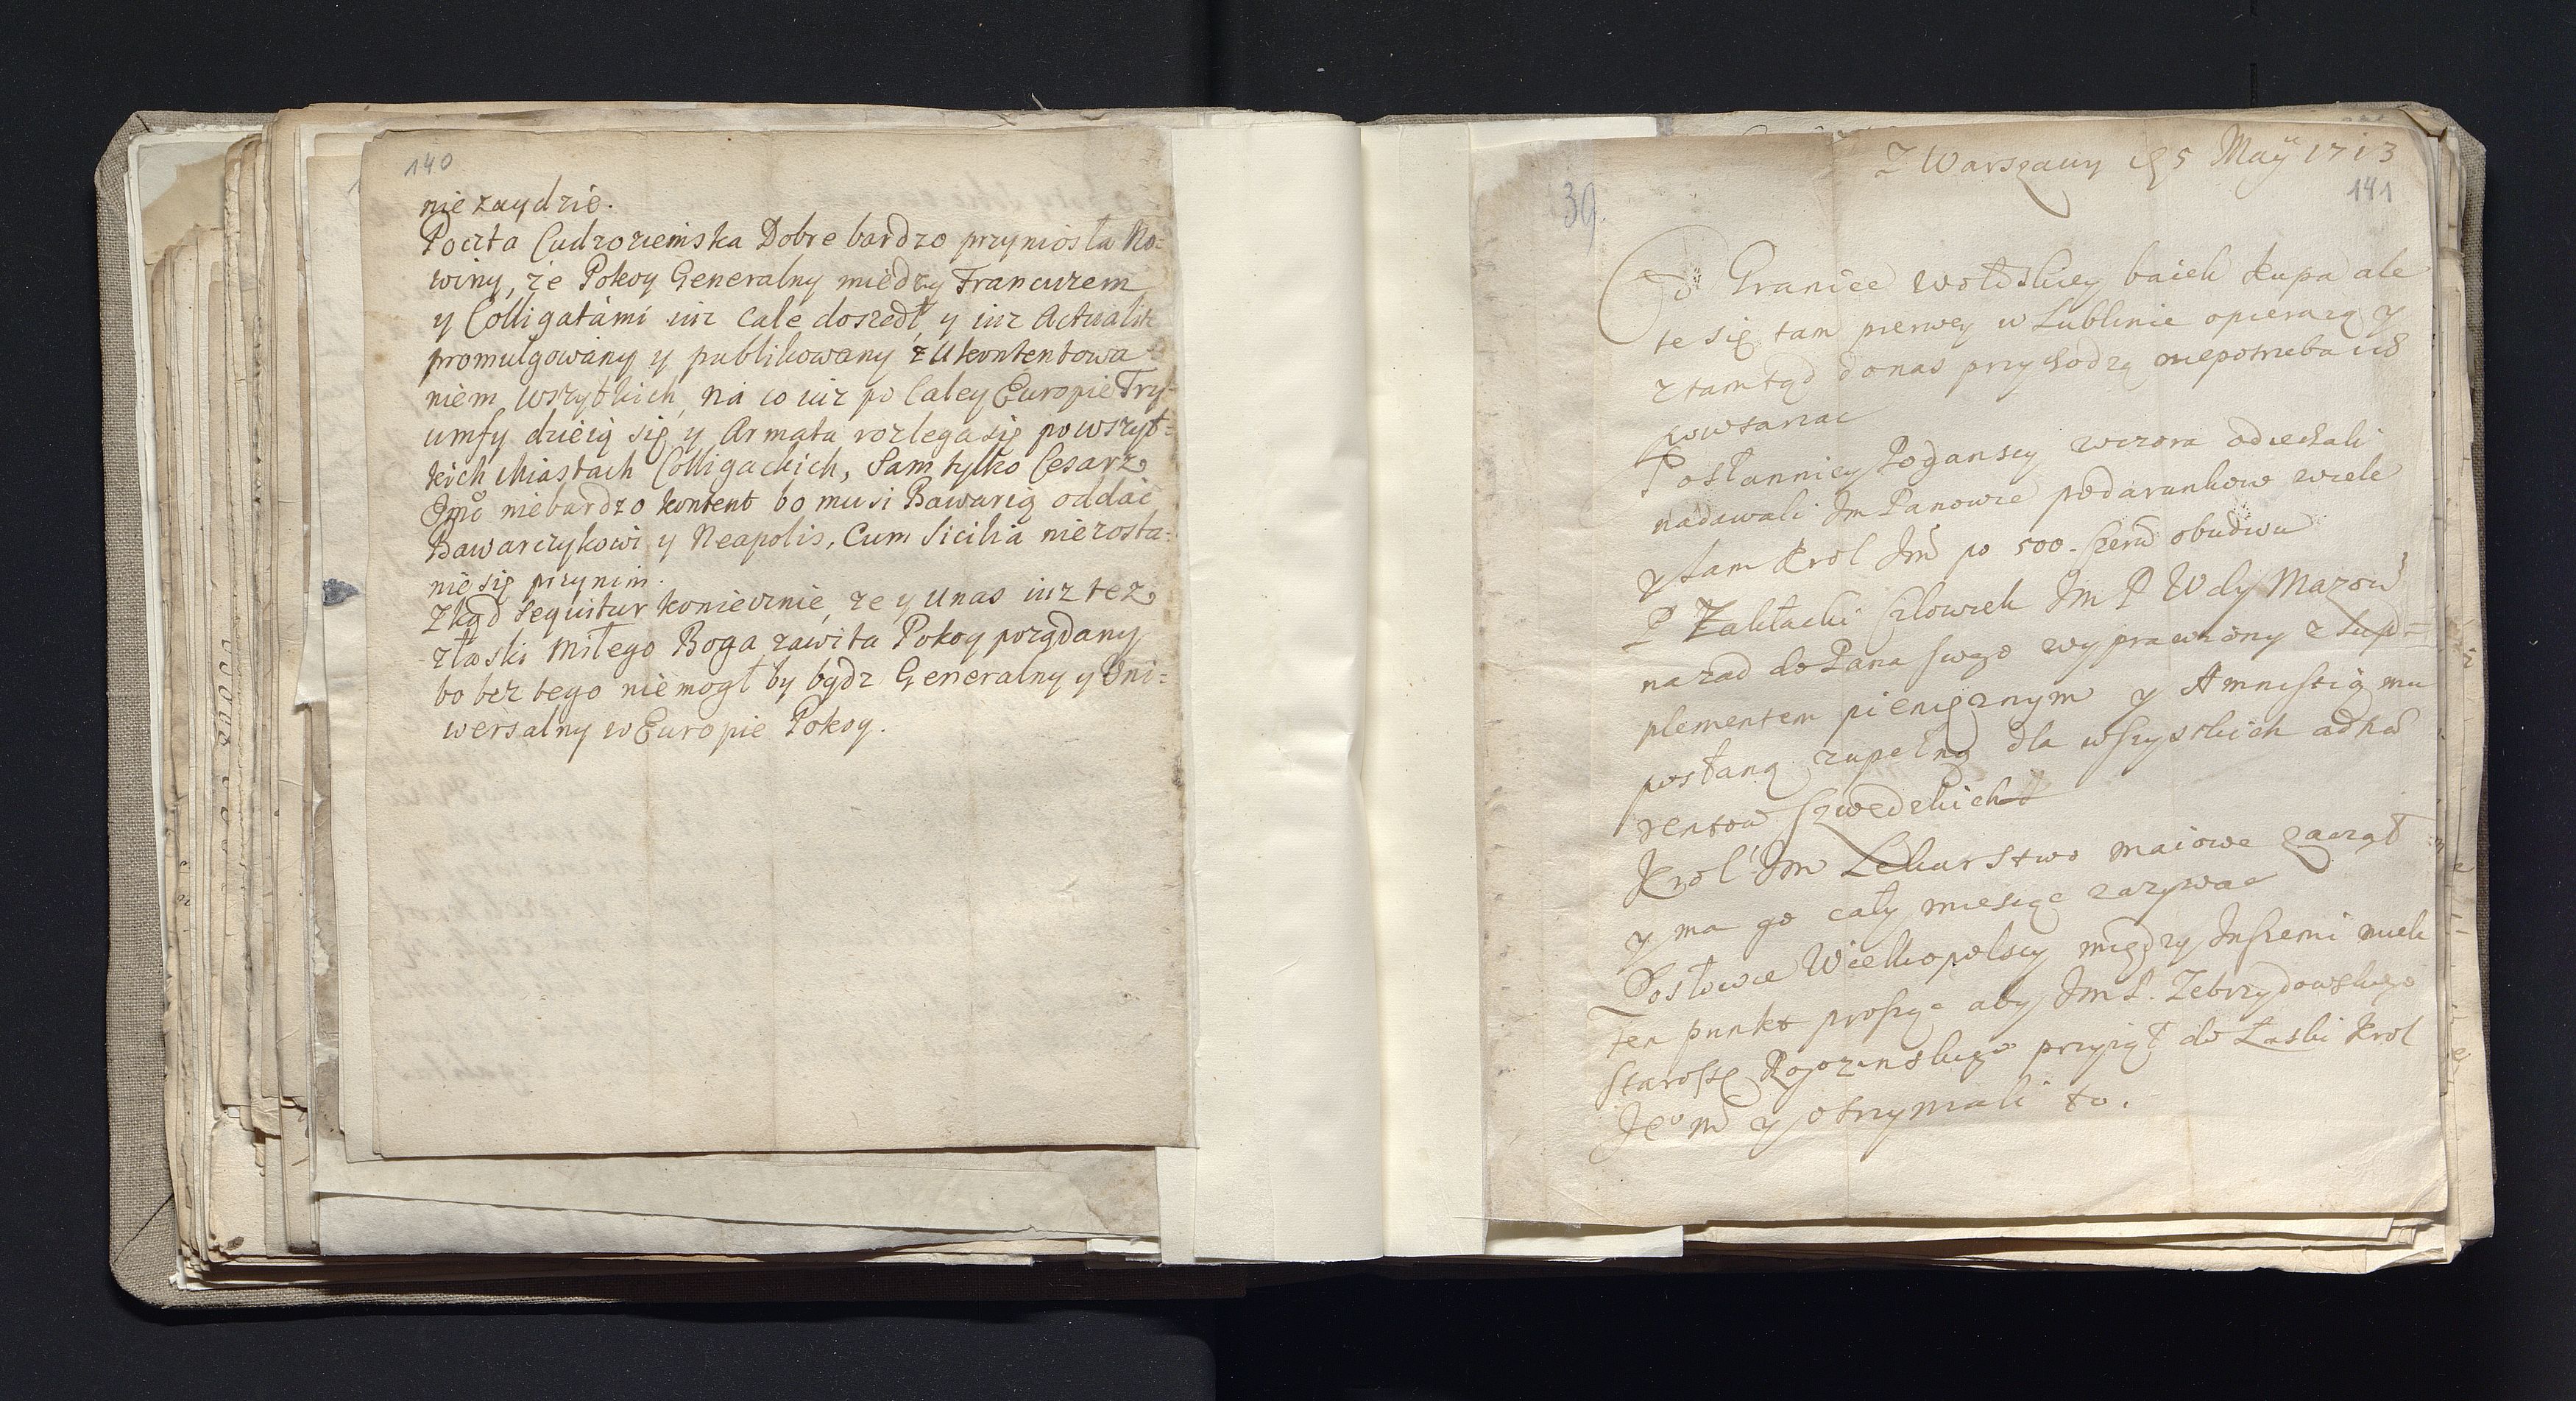 140
nie zaydzie.
Poczta Cudzoziemska Dobre bardzo przyniosła No=
winy, że Pokoy Generalny między Francuzem
y Colligatámi iuż cale doszedł, y iuż Actualit
promulgowány y publikowany z Ukontentowa
niem wszytkich, ná co iuż po Caley Europie Try-
umfy dzieią się y Armata rozlega się po wszyt=
kich Miastach Colligackich, Sam tylko Cesarz
Jmć niebardzo kontent bo musi Bawarią oddać
Bawarczykowi y Neapolis, Cum Sicilia niezosta=
nie się przynim.
Zkąd sequitur koniecznie, że y unas iuż też
złaski Miłego Boga zawita Pokoy pożądany
bo bez tego niemogł by bydz Generalny y Uni=
wersalny w Europie Pokoy.
Z Warszawy 5 Maÿ 1713
39.
141
Od Granice wołoskiey baiek kupa ale
te się tam pierwey w Lublinie opieraią y
ztamtąd donas przychodzą niepotrzeba ich
powtarzac
Posłannicy Poganscy wczora odiechali
nadawali Im Panowie podarunkow wiele
y sam Krol Jmć po 500. obudwu
P Zaktacki Człowiek Im P Wdy Mazow
nazad do Pana swego wyprawiony z Sup=
plementem pieniężnym y Amnistią mu
posłaną zupełną dla wszystkich adhæ
rentow Szwedzkich
Krol Im Lekarstwo maiowe zaczął
y ma go cały miesiąc zazywac
Posłowie Wielkopolscy między Inszemi mieli
ten punkt prosząc aby Im P. Zebrzydowskiego
Starostę Rogozinskiego przyiął do Łaski Krol
Jeo m y otrzymali to.